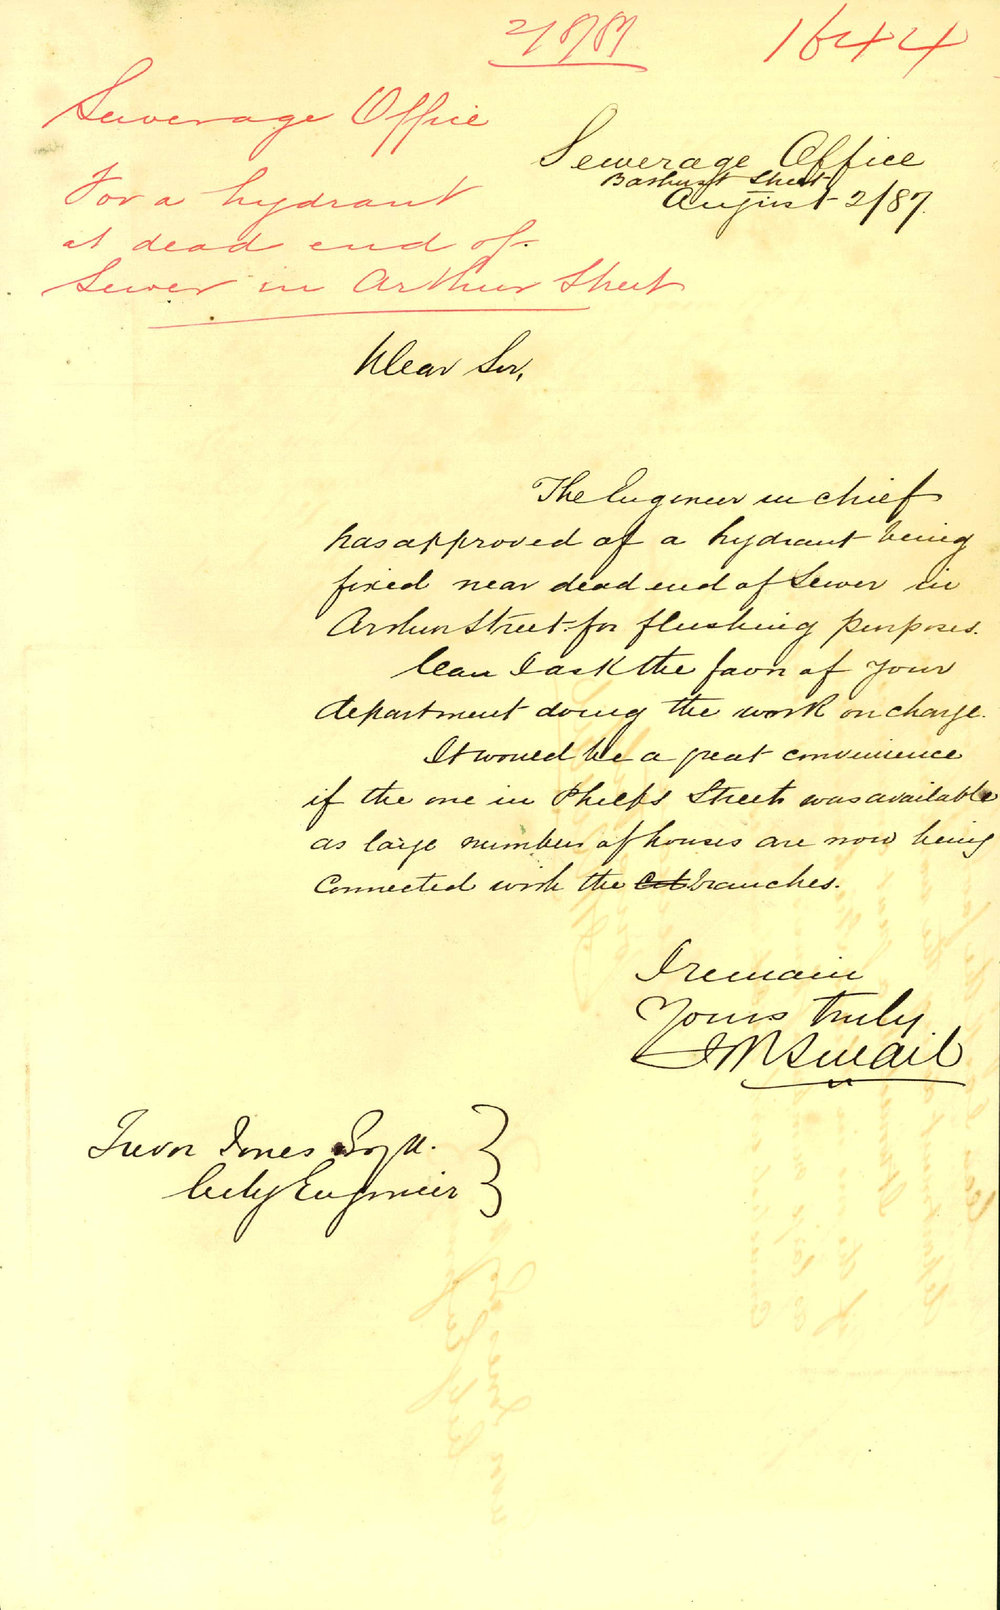 2/8/87
1644
Sewerage Office
For a hydrant
at dead end of
Sewer in Arthur Street
Sewerage Office
Bathurst Street
August 2/87
Dear Sir,
The Engineer in chief
has approved of a hydrant being
fixed near dead end of Sewer in
Arthur Street for flushing purposes.
Can I ask the favor of your
department doing the work on charge.
It would be a great convenience
if the one in Phelps Street was available
as large number of houses are now being
connected with the branches.
I remain
Yours truly
J M Smail
Trevor Jones Esqr.
City Engineer